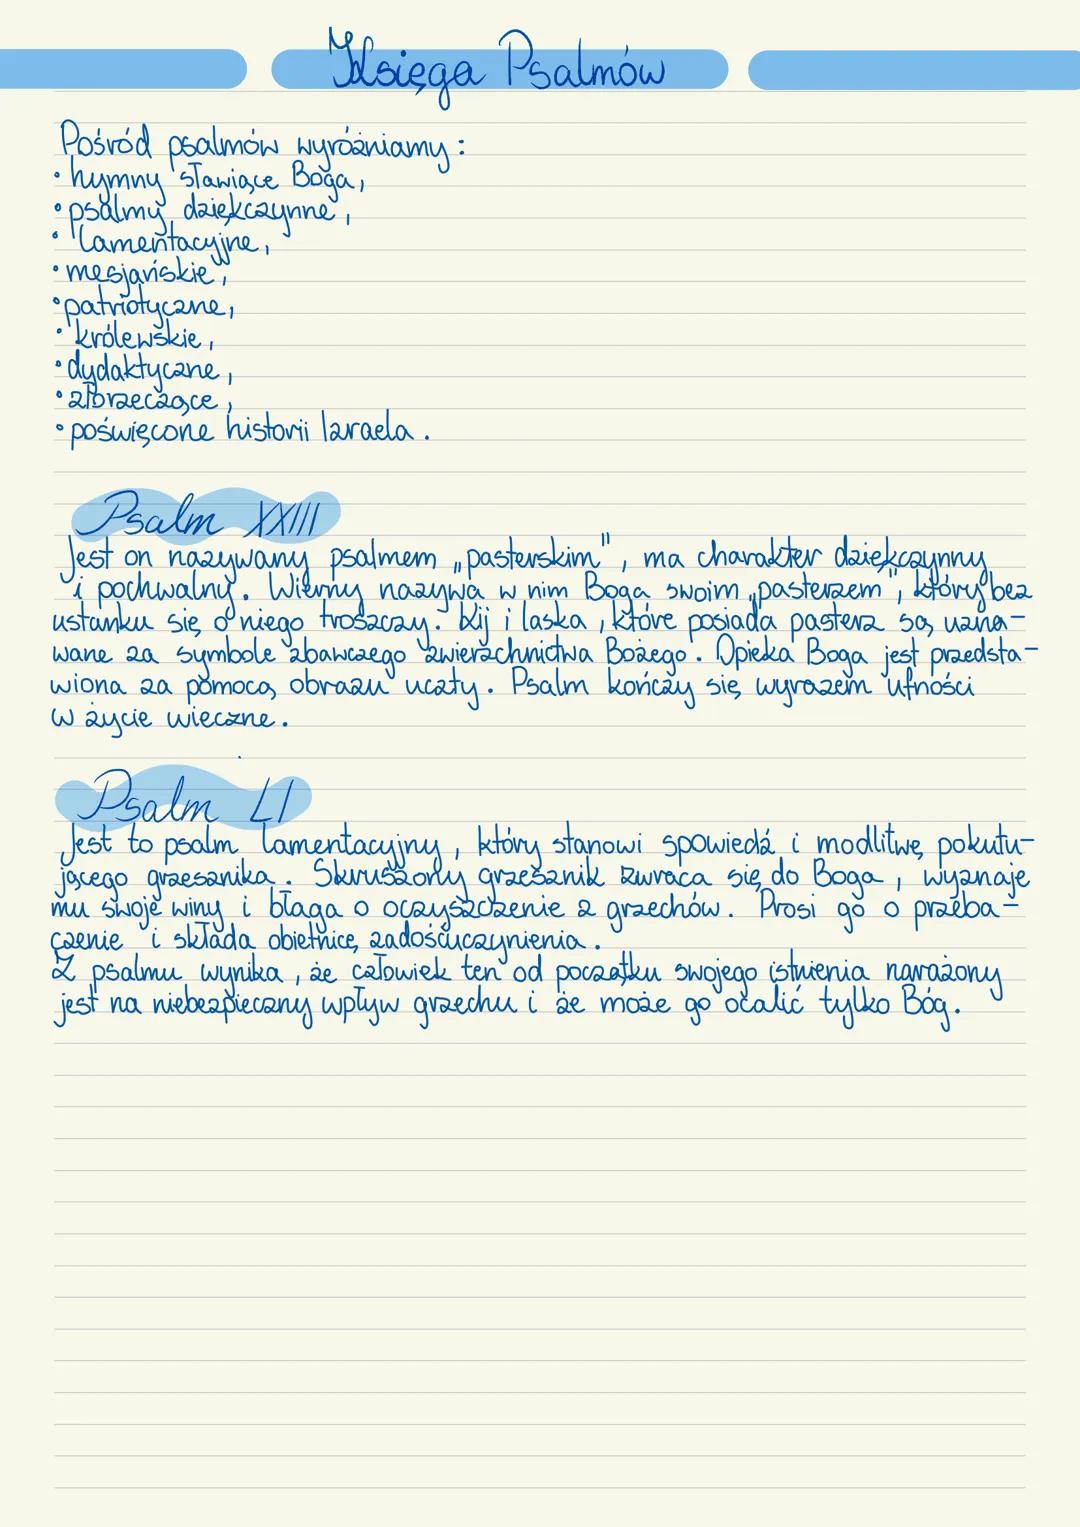 Księga Psalmów
Pośród psalmów wyróżniamy:
• hymny sławiące Boga,
• psalmy dziękczynne,
• lamentacyjne,
• mesjańskie,
• patriotyczne,
• królewskie,
• dydaktyczne,
• złorzeczące,
• poświęcone historii Izraela.
Psalm XXIII
Jest on nazywany psalmem „pasterskim", ma charakter dziękczynny
i pochwalny. Wierny nazywa w nim Boga swoim „pasterzem", który bez
ustanku się o niego troszczy. Kij i laska, które posiada pasterz są uzna-
wane za symbole zbawczego zwierzchnictwa Bożego. Opieka Boga jest przedsta-
wiona za pomocą obrazu uczty. Psalm kończy się wyrazem ufności
w życie wieczne.
Psalm LI
Jest to psalm lamentacyjny, który stanowi spowiedź i modlitwę pokutu-
jącego grzesznika. Skruszony grzesznik zwraca się do Boga, wyznaje
mu swoje winy i błaga o oczyszczenie z grzechów. Prosi go o przeba-
czenie i składa obietnicę zadośćuczynienia.
Z psalmu wynika, że człowiek ten od początku swojego istnienia narażony
jest na niebezpieczny wpływ grzechu i że może go ocalić tylko Bóg.